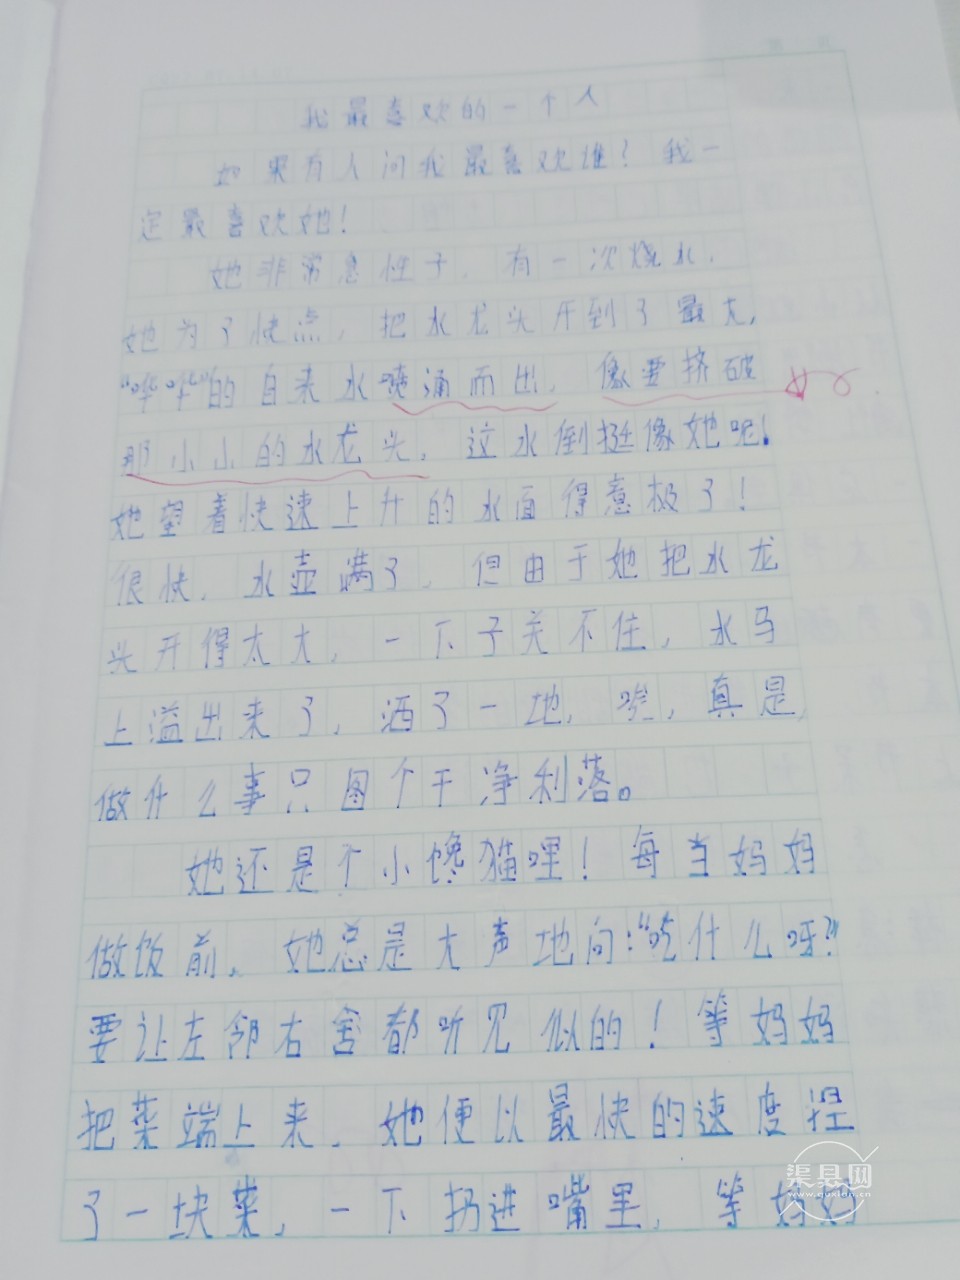 我最喜欢的一个人
如果有人问我最喜欢谁？我一
定最喜欢她！
她非常急性子，有一次烧水，
她为了快点，把水龙头开到了最大，
“哗哗”的自来水喷涌而出，像要挤破
那小小的水龙头，这水倒挺像她呢！
她望着快速上升的水面得意极了！
很快，水壶满了，但由于她把水龙
头开得太大，一下子关不住，水马
上溢出来了，洒了一地，唉，真是，
做什么事只图个干净利落。
她还是个小馋猫哩！每当妈妈
做饭前，她总是大声地问：“吃什么呀？”
要让左邻右舍都听见似的！等妈妈
把菜端上来，她便以最快的速度捏
了一块菜，一下扔进嘴里，等妈妈
渠县网
www.quxian.cn